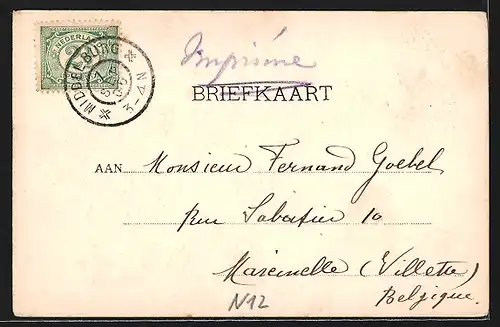 NEDERLAND
MIDDELBURG
3-4 N
Imprimé
BRIEFKAART
AAN Monsieur Fernand Goebel
Rue Sabatier 10
Marcinelle (Villette)
Belgique.
N12